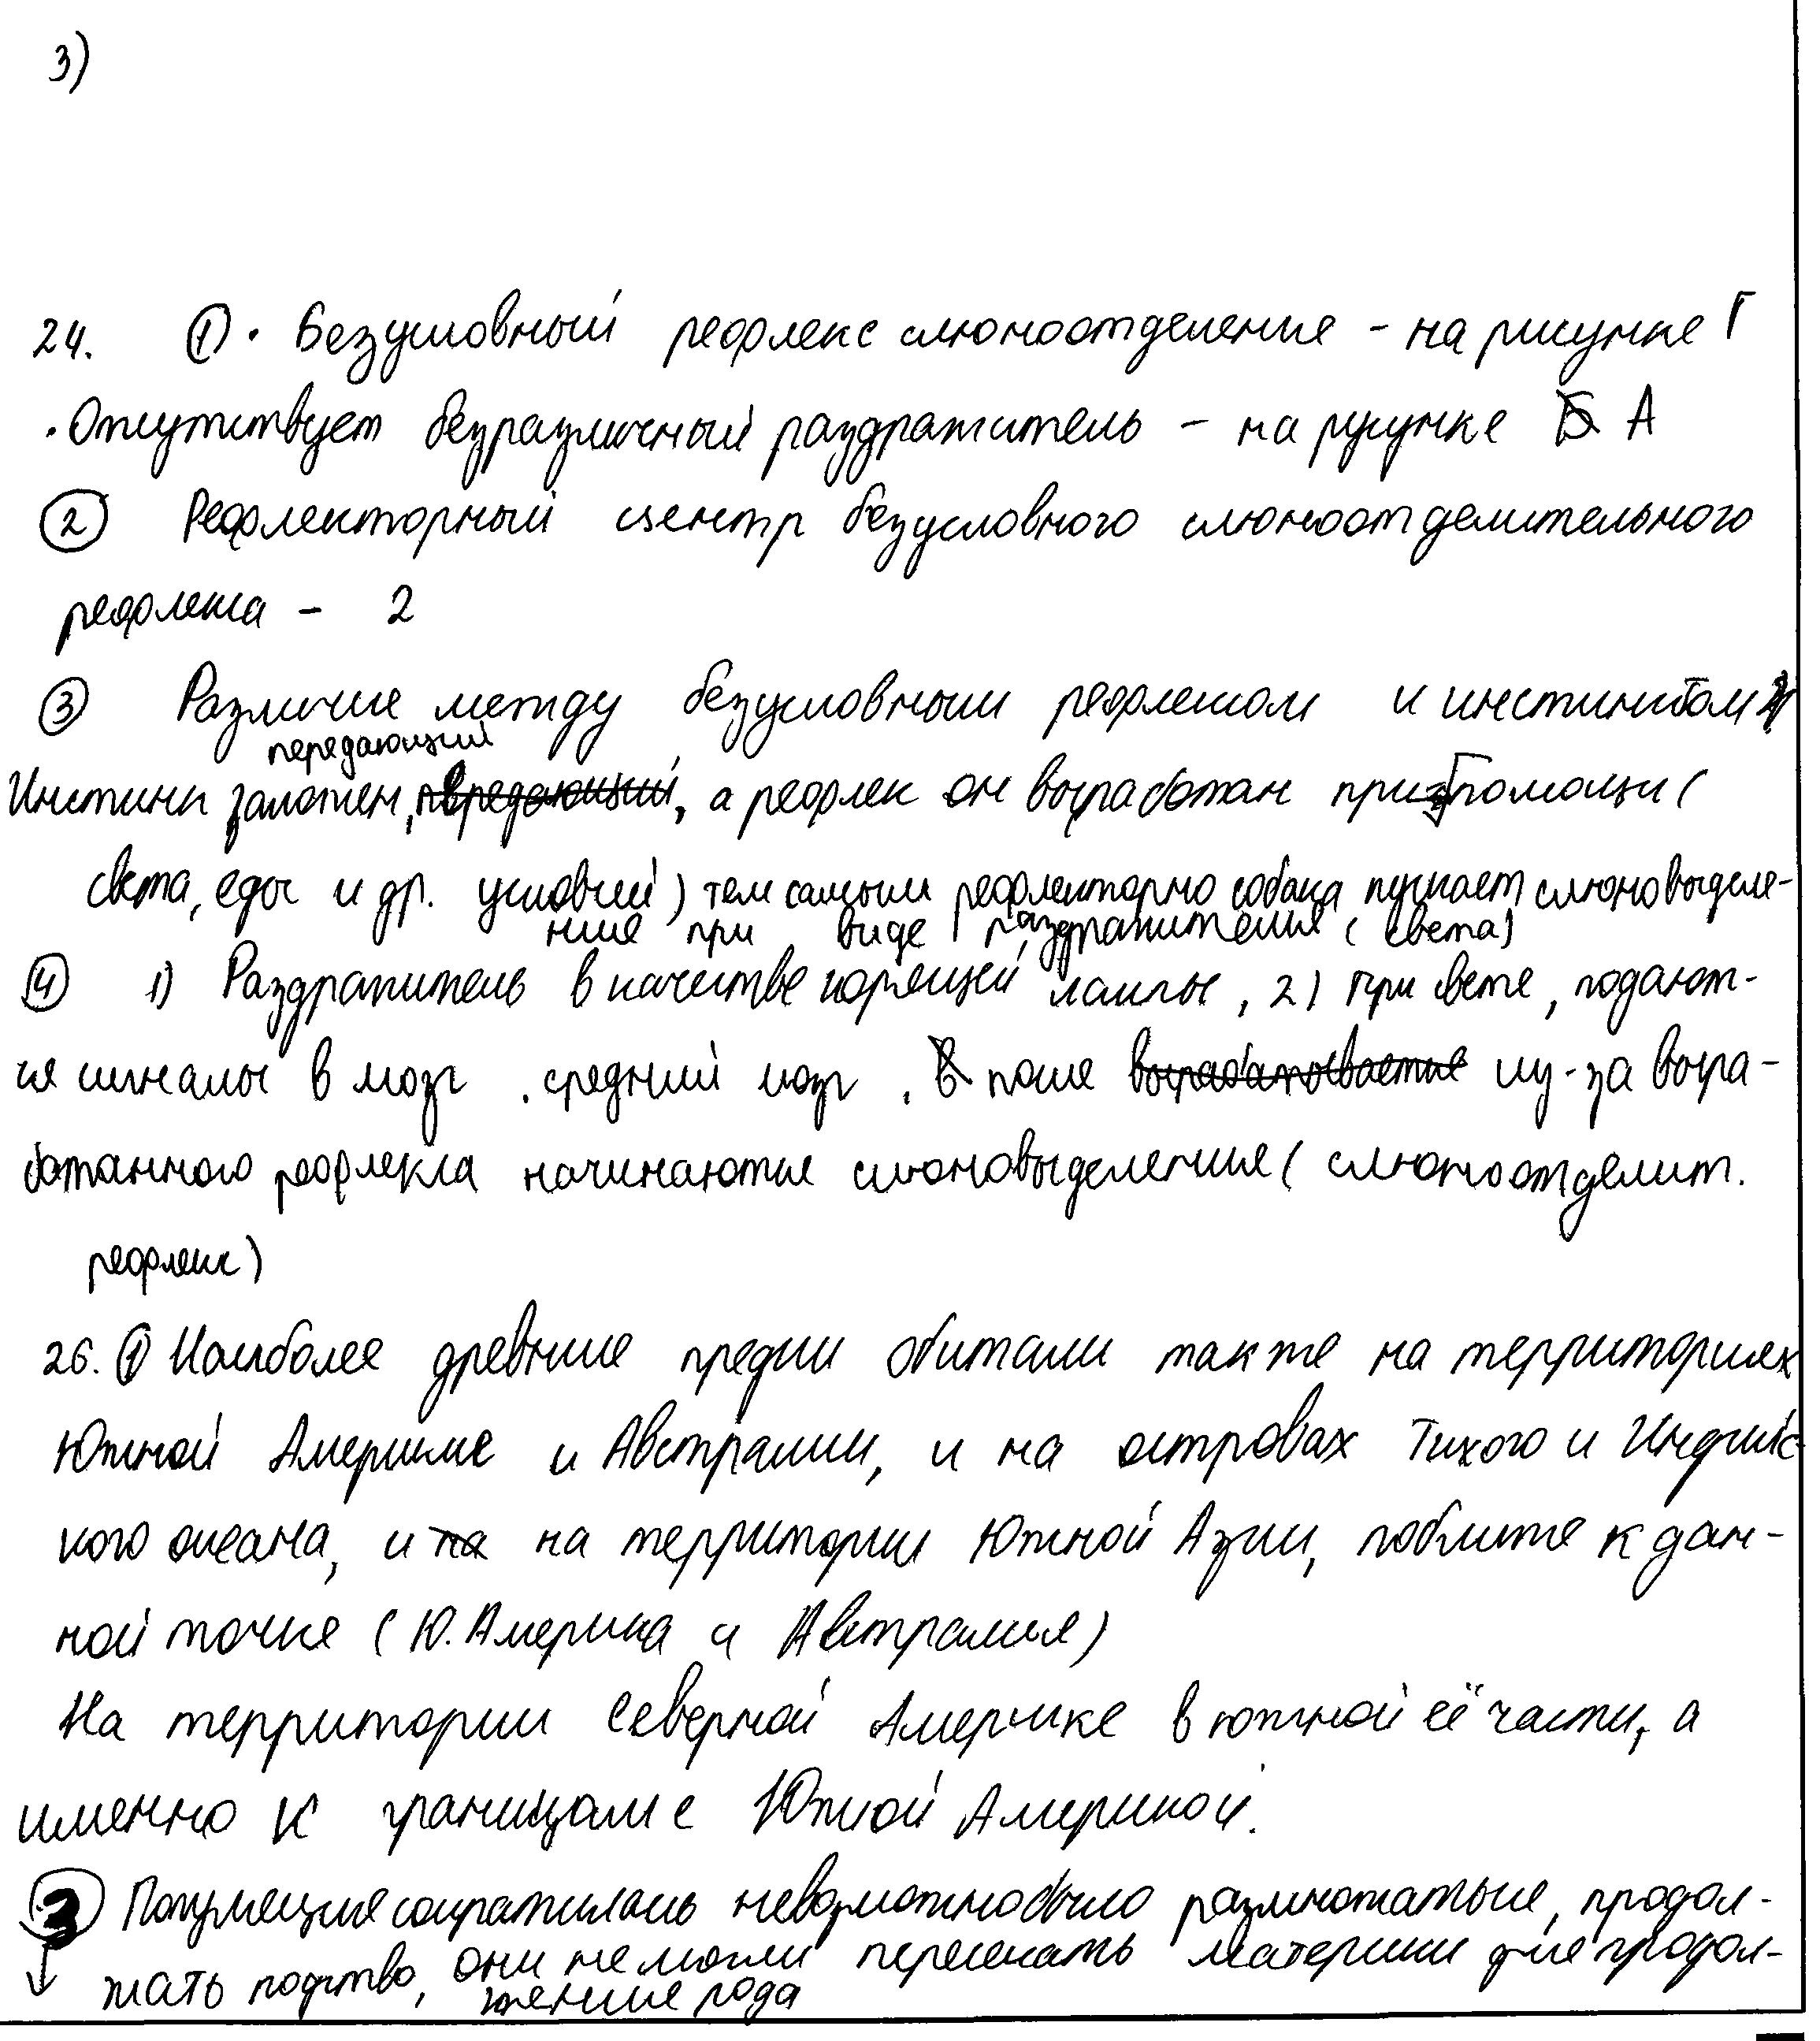 3)
24. ① · Безусловный рефлекс слюноотделение - на рисунке Г
· Отсутствует безразличный раздражитель - на русунке А
② Рефлекторный центр безусловного слюноотделительного
рефлекса - 2
③ Различие между безусловным рефлексом и инстинктом
передающий
Инстинк заложен, передающий, а рефлек он выработан при помощи (
света, еды и др. условий) тем самым рефлекторно собака пускает слюновыделе-
ние при виде раздражителя (света)
④ 1) Раздражитель в качестве горящей лампы, 2) При свете, подают-
ся сигналы в мозг. средний мозг. после вырабатывается из-за выра-
ботанного рефлекса начинаются слюновыделения (слюноотделит.
рефлекс)
26. ① Наиболее древние предки обитали также на территориях
Южной Америке и Австралии, и на островах Тихого и Индийс
кого океана, и на на территории Южной Азии, поближе к дан-
ной точке (Ю. Америка и Австралия)
На территории Северной Америке в южной её части, а
именно к границам с Южной Америкой.
③ Популяция сократилась невозможно было размножаться, продол-
жать потство, они не могли пересекать материки для продол-
жение рода